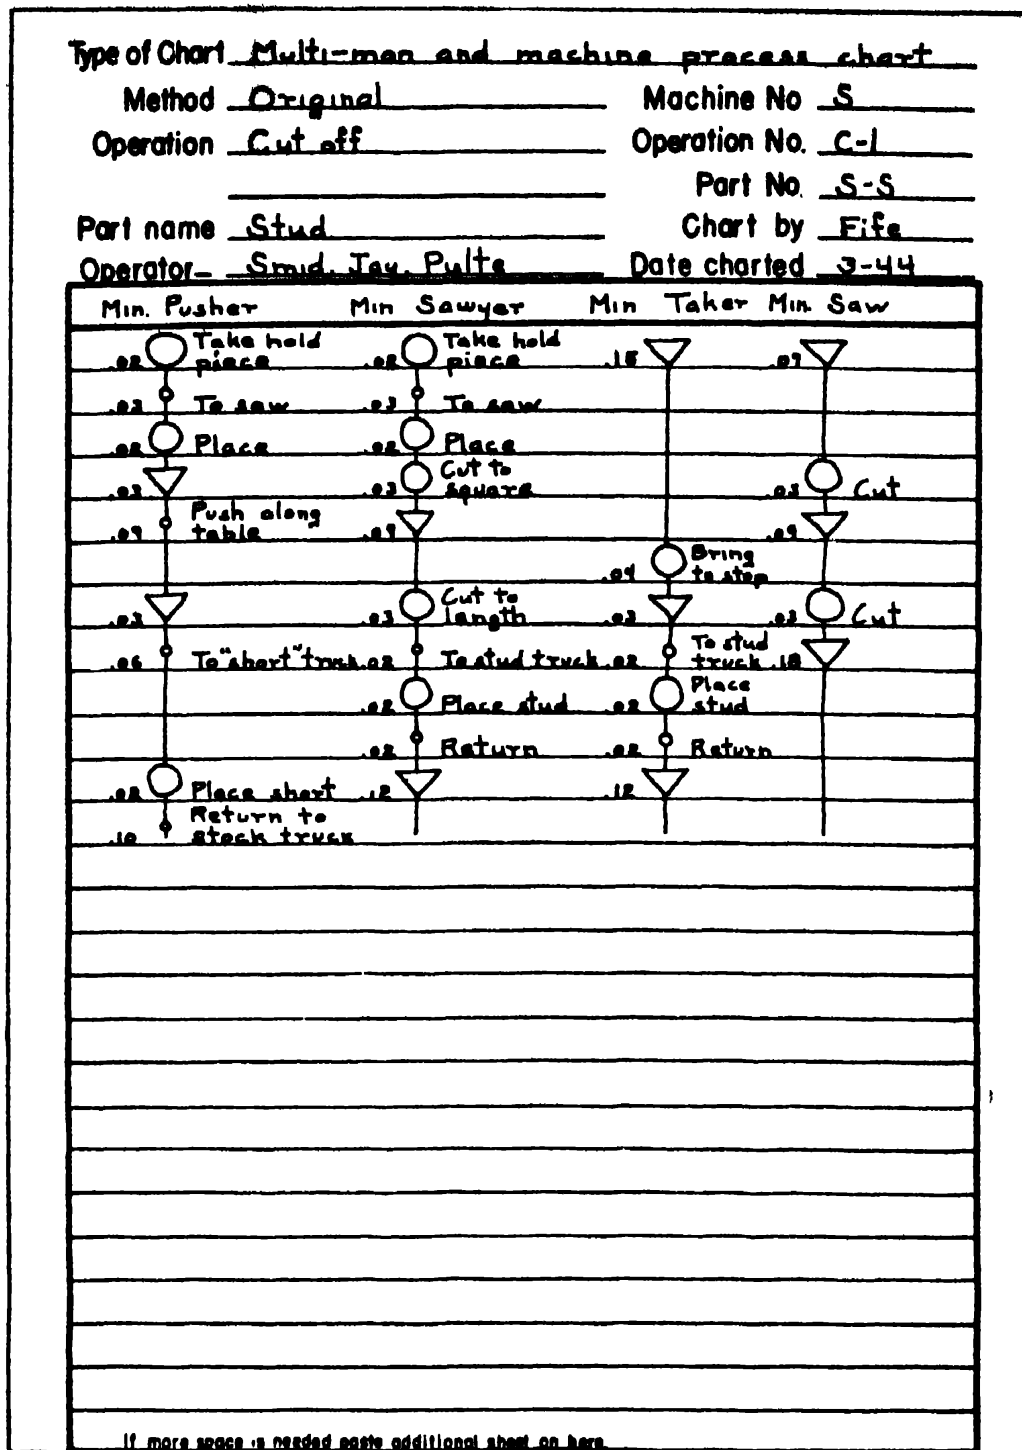 Type of Chart Multi-man and machine process chart
Method Original Machine No S
Operation Cut off Operation No. C-1
Part No. S-S
Part name Stud Chart by Fife
Operator Smid, Jay, Pulte Date charted 3-44
Min. Pusher Min Sawyer Min Taker Min. Saw
.02 Take hold piece .02 Take hold piece .15 .07
.03 To saw .03 To saw
.02 Place .02 Place
.03 .03 Cut to square .03 Cut
.09 Push along table .09 .09
.04 Bring to stop
.03 .03 Cut to length .03 .03 Cut
.06 To "short" truck .02 To stud truck .02 To stud truck .18
.02 Place stud .02 Place stud
.02 Return .02 Return
.02 Place short .12 .12
.10 Return to stock truck
If more space is needed paste additional sheet on here